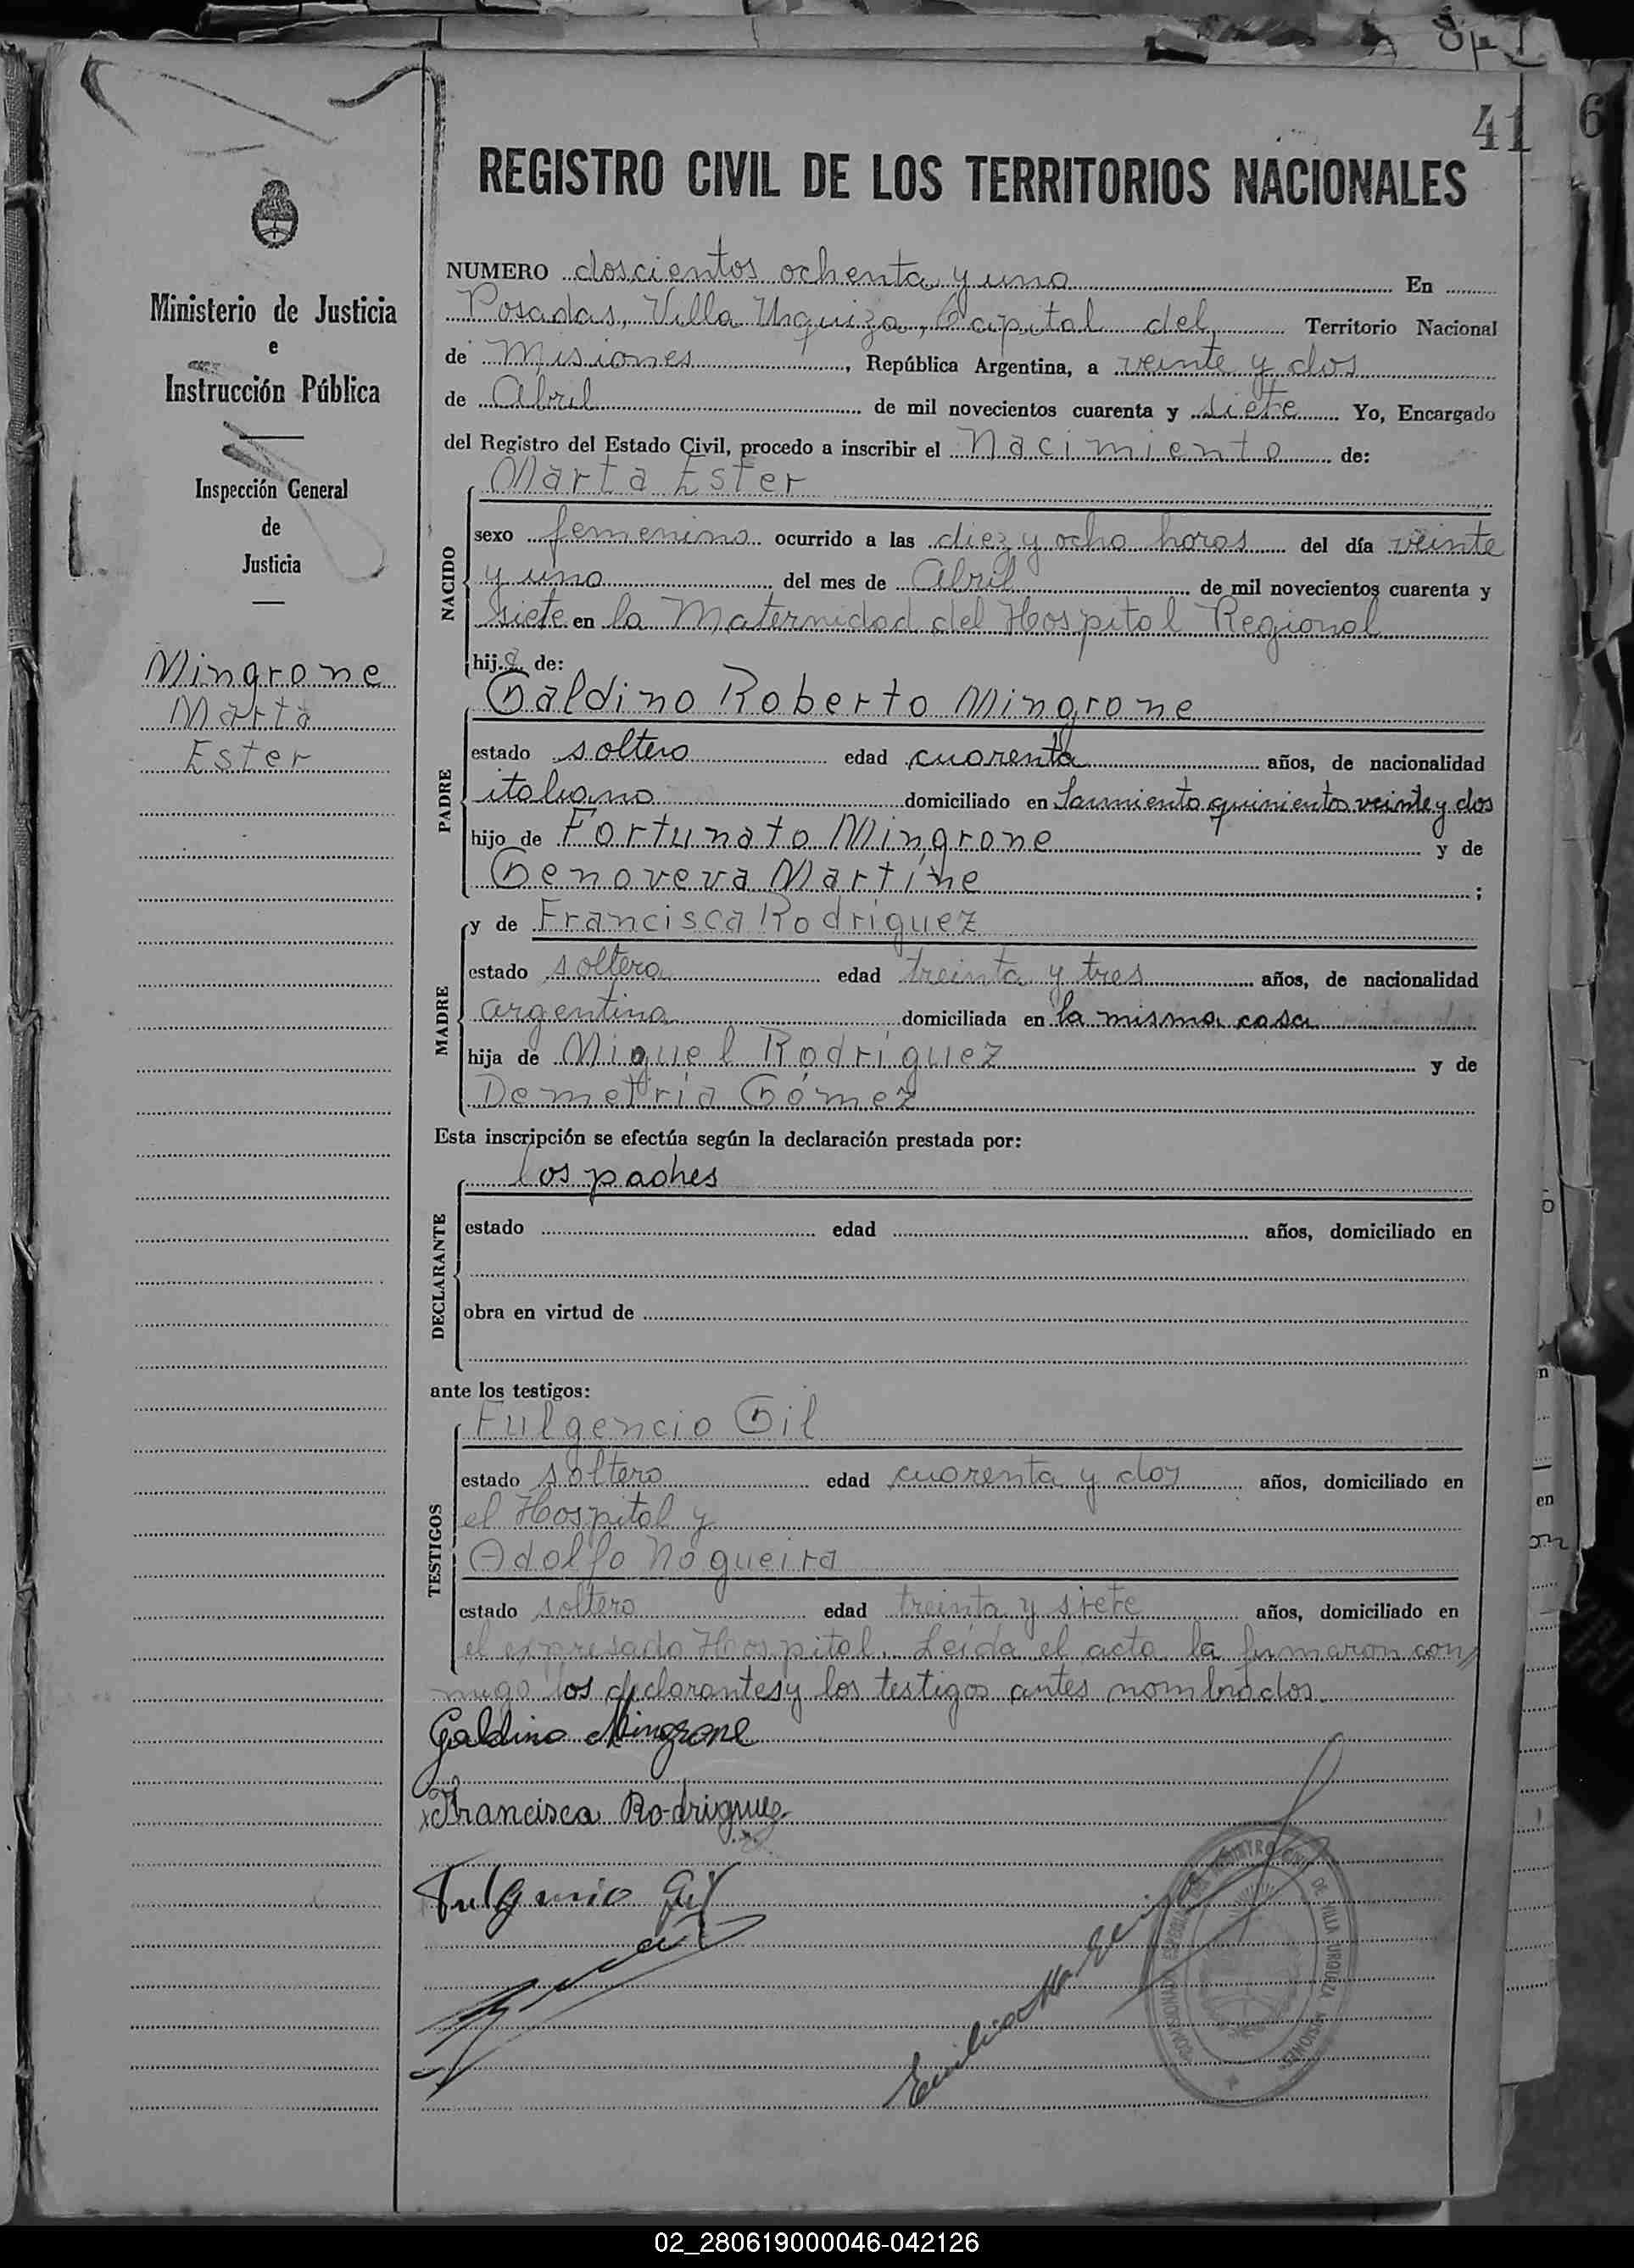 41
6
REGISTRO CIVIL DE LOS TERRITORIOS NACIONALES
Ministerio de Justicia
e
Instrucción Pública
Inspección General
de
Justicia
Mingrone
Marta
Ester
NUMERO doscientos ochenta y uno En
Posadas, Villa Urquiza, Capital del Territorio Nacional
de Misiones, República Argentina, a veinte y dos
de Abril de mil novecientos cuarenta y siete Yo, Encargado
del Registro del Estado Civil, procedo a inscribir el Nacimiento de:
NACIDO
Marta Ester
sexo femenino ocurrido a las diez y ocho horas del día veinte
y uno del mes de Abril de mil novecientos cuarenta y
siete en la Maternidad del Hospital Regional
hija de:
PADRE
Galdino Roberto Mingrone
estado soltero edad cuarenta años, de nacionalidad
italiano domiciliado en Sarmiento quinientos veinte y dos
hijo de Fortunato Mingrone y de
Genoveva Martine ;
MADRE
y de Francisca Rodríguez
estado soltera edad treinta y tres años, de nacionalidad
argentina domiciliada en la misma casa
hija de Miguel Rodríguez y de
Demetria Gómez
Esta inscripción se efectúa según la declaración prestada por:
DECLARANTE
los padres
estado edad años, domiciliado en
obra en virtud de
ante los testigos:
TESTIGOS
Fulgencio Gil
estado soltero edad cuarenta y dos años, domiciliado en
el Hospital y
Adolfo Nogueira
estado soltero edad treinta y siete años, domiciliado en
el expresado Hospital. Leída el acta la firmaron con
migo los declarantes y los testigos antes nombrados.
Galdino Mingrone
Francisca Rodriguez
Fulgencio Gil
REGISTRO CIVIL DE VILLA URQUIZA MISIONES
02_280619000046-042126